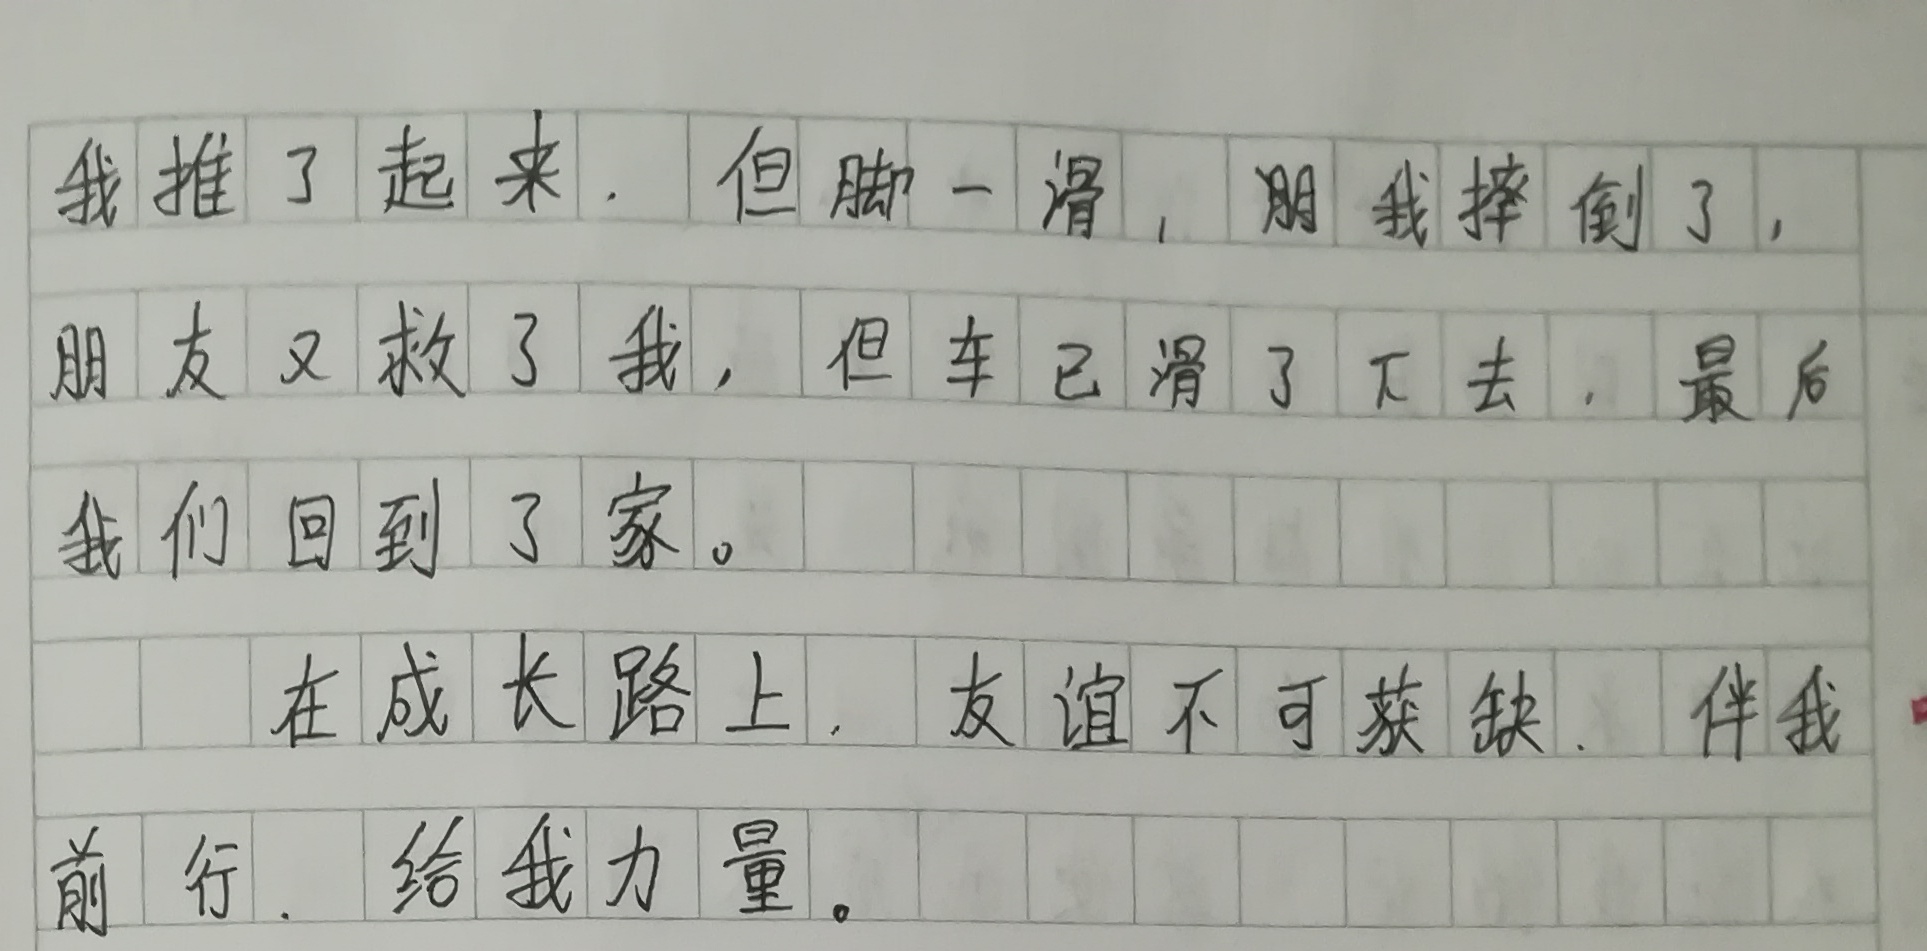 我推了起来，但脚一滑，朋我摔倒了，
朋友又救了我，但车已滑了下去，最后
我们回到了家。
在成长路上，友谊不可获缺，伴我
前行，给我力量。